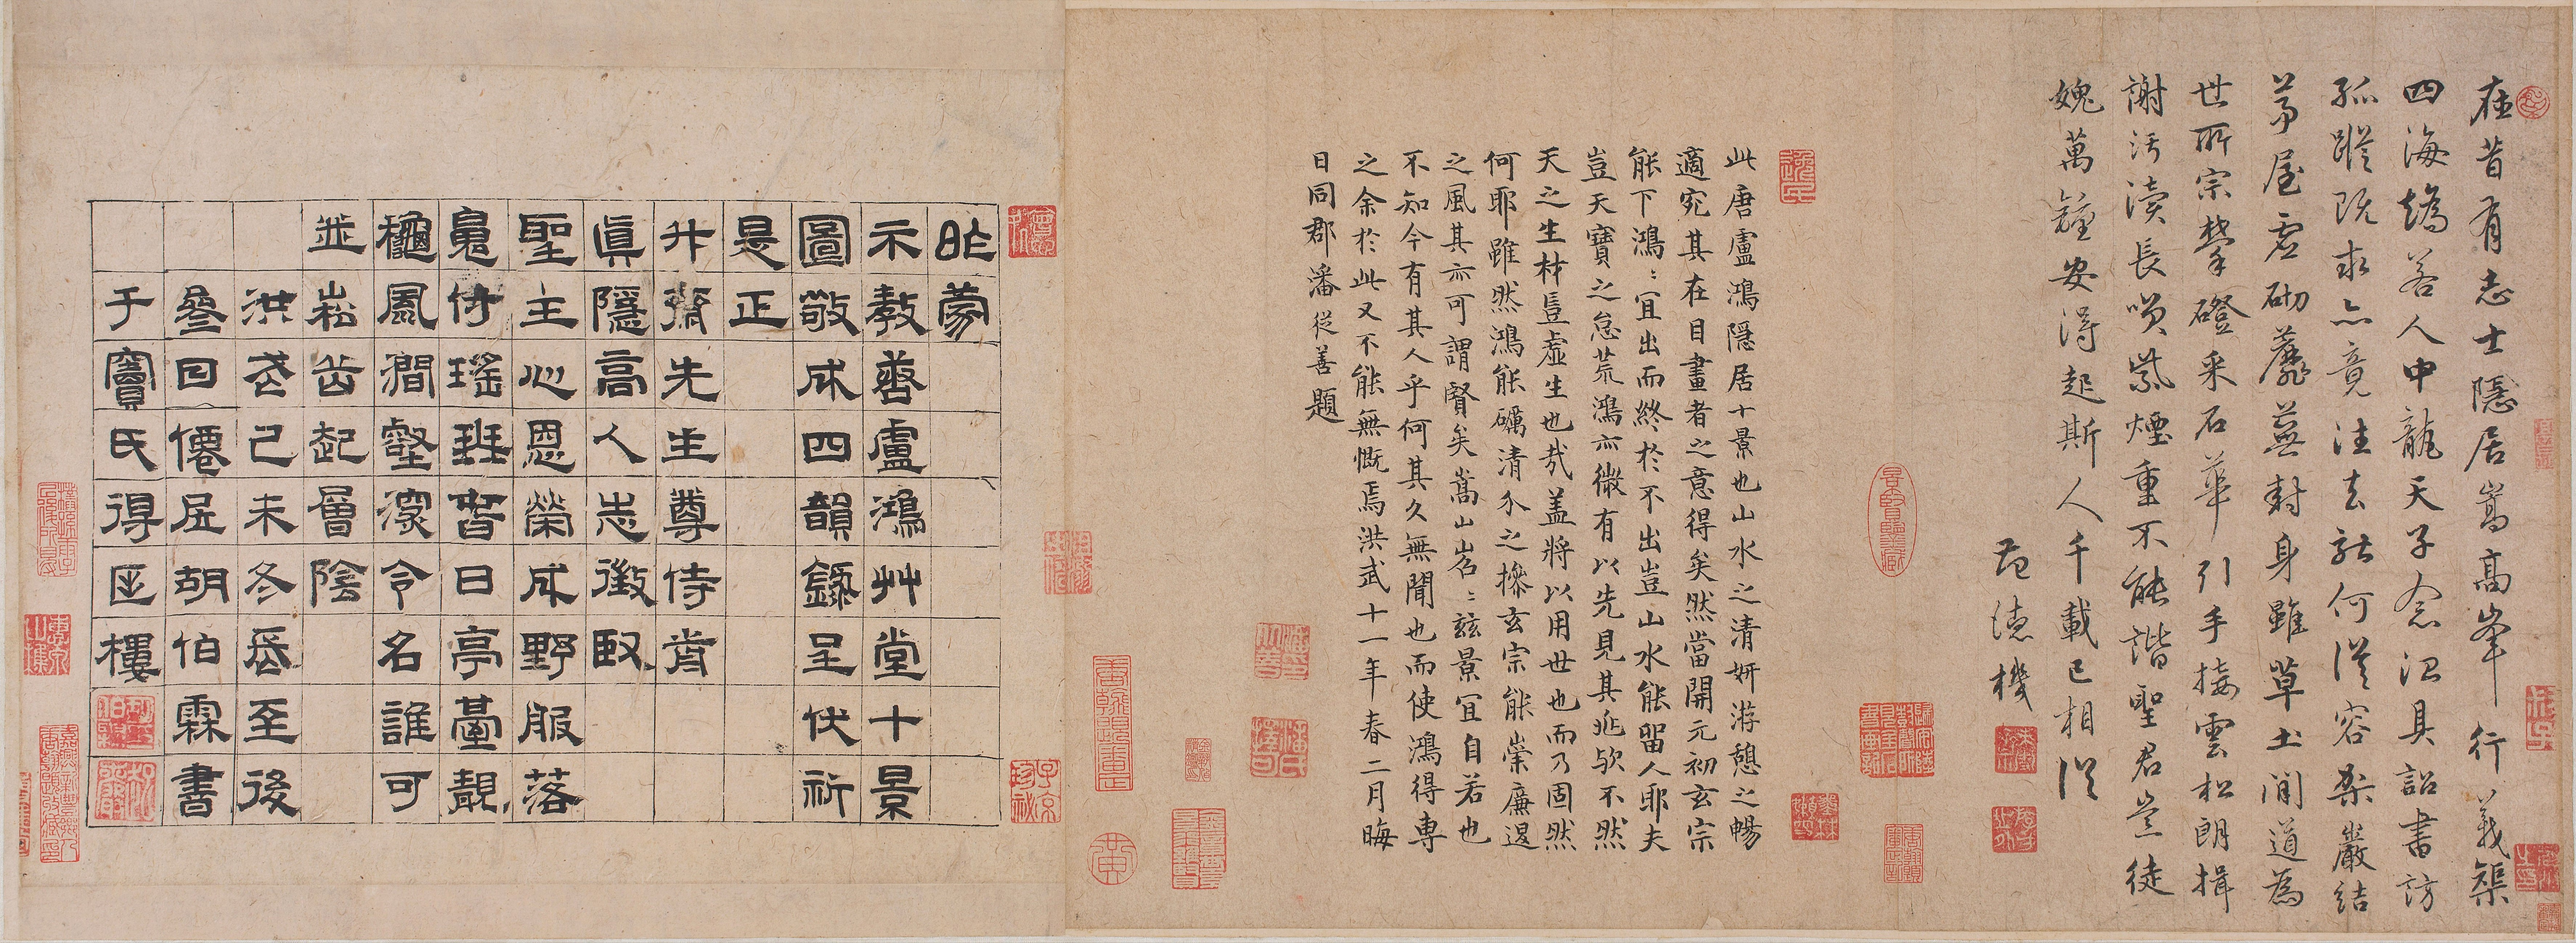 在昔有志士隱居嵩高峯行義槩
四海矯若人中龍天子念潛具詔書訪
孤蹤既求亦竟注去就何從容桑巖結
茅屋虛砌蘼蕪封身雖草土間道為
世所宗攀磴采石華引手接雲松朗揖
謝汚瀆長嘆紫煙重不能諧聖君豈徒
媿萬鍾安得起斯人千載已相從
范德機
此唐盧鴻隱居十景也山水之清妍游憩之暢
適宛其在目畫者之意得矣然當開元初玄宗
能下鴻〻宜出而終於不出豈山水能留人耶夫
豈天寶之怠荒鴻亦微有以先見其兆歟不然
天之生材豈虛生也哉盖將以用世也而乃固然
何耶雖然鴻能礪清介之操玄宗能崇廉退
之風其亦可謂賢矣嵩山嵓〻兹景宜自若也
不知今有其人乎何其久無聞也而使鴻得專
之余於此又不能無慨焉洪武十一年春二月晦
日同郡潘從善題
昨蒙
示教善盧鴻艸堂十景
圖敬成四韻錄呈伏祈
是正
升齋先生尊侍肯
真隱高人志徵臤
聖主心恩榮成野服落
鳧侍瑤班昝日亭臺靚
穐風澗壑深令名誰可
並崧岳起層陰
洪武己未冬長至後
叄日僊居胡伯霖書
于竇氏得匡樓